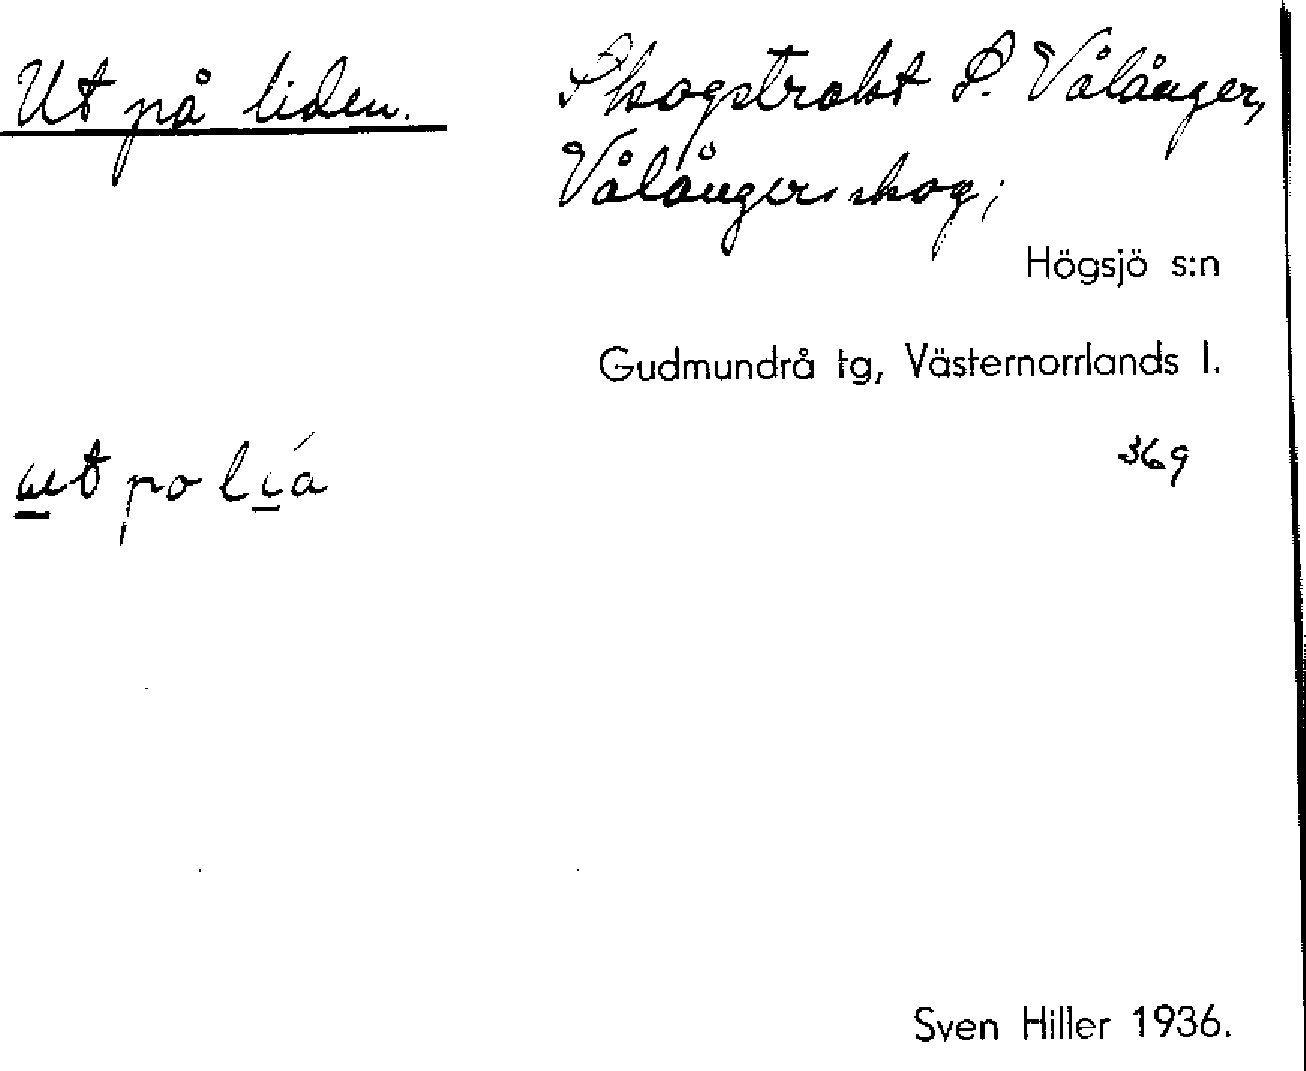 Ut på liden.
Skogstrakt S. Vålånger,
Vålångersskog;
Högsjö s:n
Gudmundrå tg, Västernorrlands l.
369
ut po lía
Sven Hiller 1936.